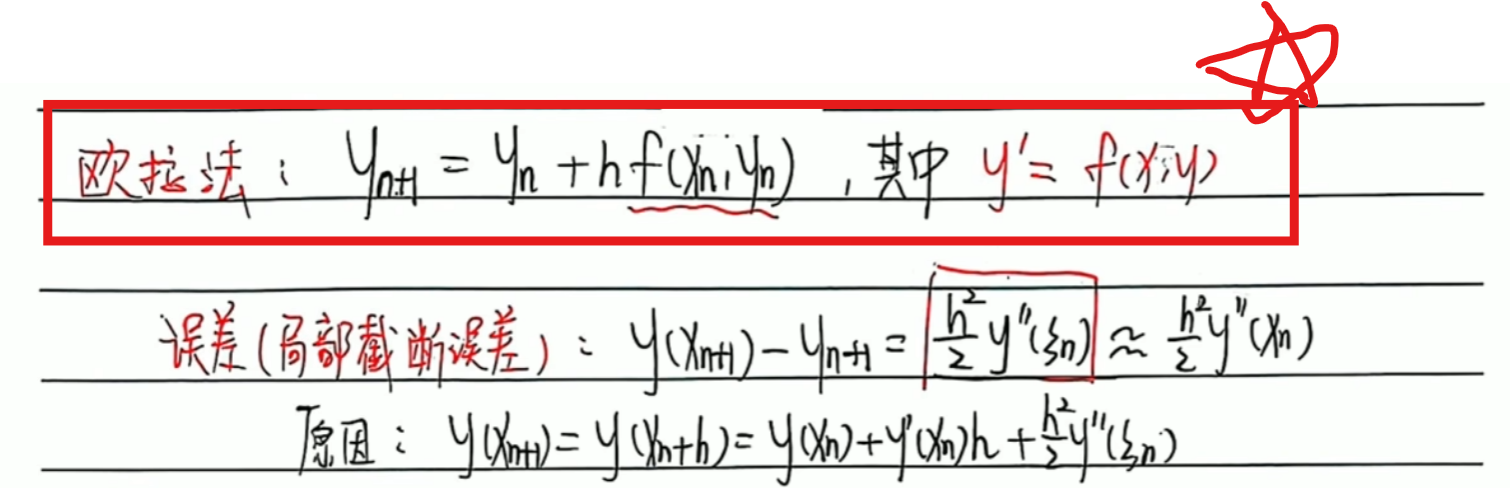 欧拉法： yₙ₊₁ = yₙ + hf(xₙ, yₙ) ，其中 y' = f(x,y)
误差(局部截断误差)： y(xₙ₊₁) − yₙ₊₁ = h²/2 y''(ξₙ) ≈ h²/2 y''(xₙ)
原因： y(xₙ₊₁) = y(xₙ+h) = y(xₙ) + y'(xₙ)h + h²/2 y''(ξₙ)